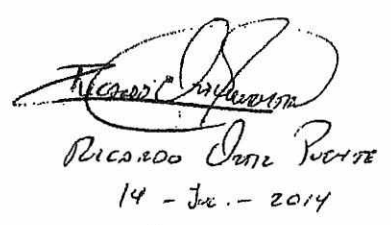 Ricardo Ortiz Puente
14 - Jul. - 2014